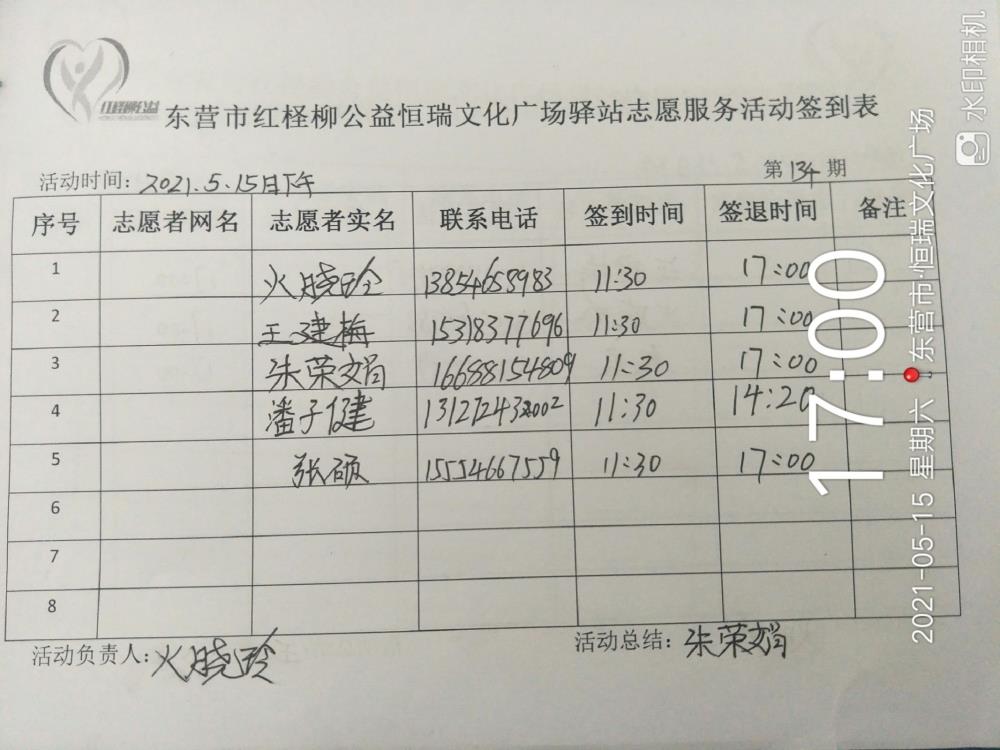 红柽柳公益
东营市红柽柳公益恒瑞文化广场驿站志愿服务活动签到表
活动时间: 2021.5.15日下午 第134期
序号 志愿者网名 志愿者实名 联系电话 签到时间 签退时间 备注
1 火晓玲 13854658983 11:30 17:00
2 王建梅 15318377696 11:30 17:00
3 朱荣娟 16688154809 11:30 17:00
4 潘子健 131272432002 11:30 14:20
5 张硕 15554667559 11:30 17:00
6
7
8
活动负责人: 火晓玲 活动总结: 朱荣娟
17:00
2021-05-15 星期六 东营市·恒瑞文化广场
水印相机